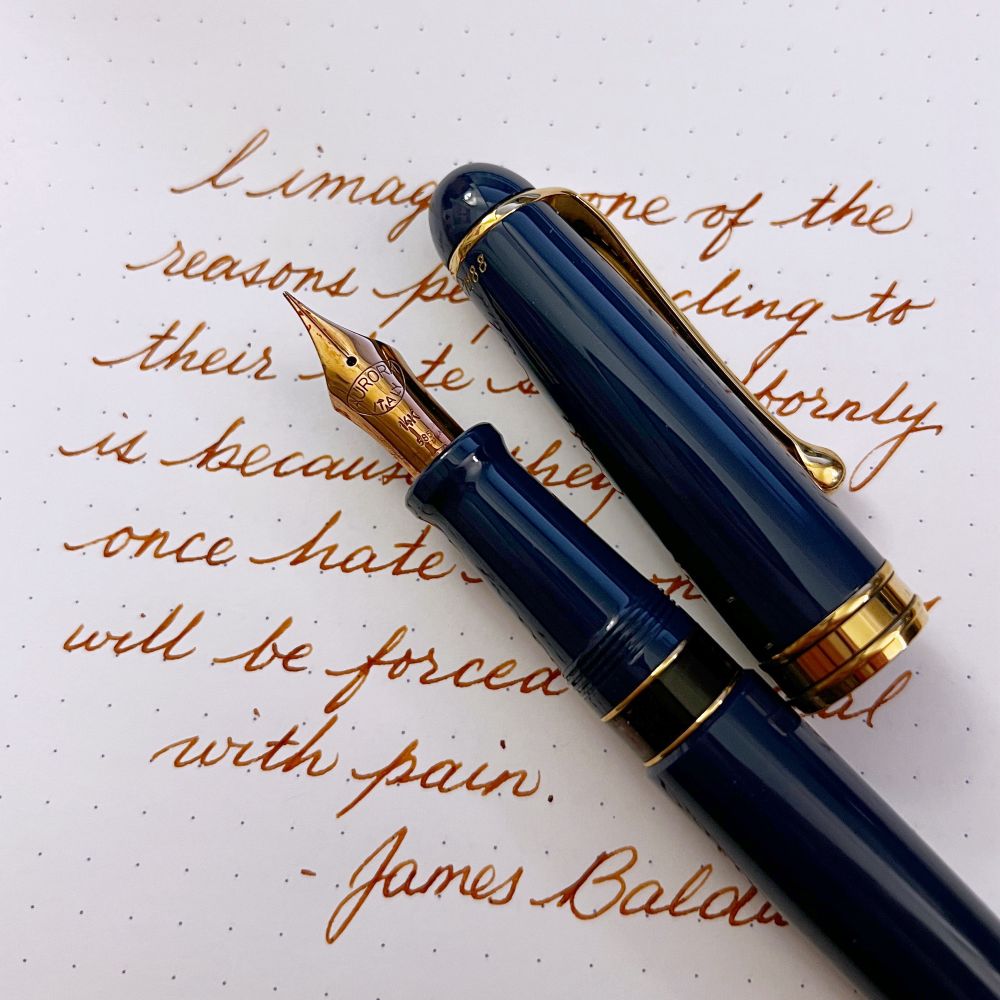 I imag one of the
reasons pe ding to
their te s bornly
is because they
once hate n
will be forced al
with pain.
- James Baldw
88
AURORA
ITALY
14K
585